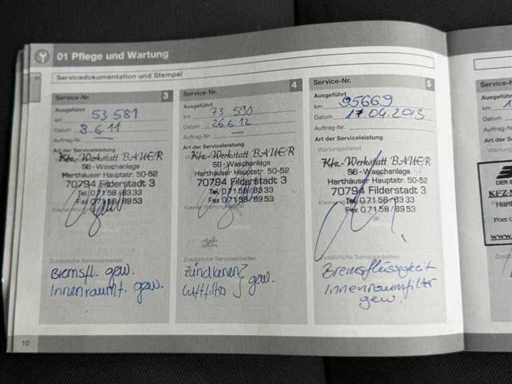 01 Pflege und Wartung
Servicedokumentation und Stempel
Service-Nr. 3
Ausgeführt
km 53 581
Datum 8.6.11
Auftrag-Nr.
Art der Serviceleistung
Kfz.-Werkstatt BAUER
SB - Waschanlage
Harthäuser Hauptstr. 50-52
70794 Filderstadt 3
Tel. 0 71 58 / 83 33
Fax 0 71 58 / 69 53
Zusätzliche Servicearbeiten
Bremsfl. gew.
Innenraumf. gew.
Service-Nr. 4
Ausgeführt
km 73 590
Datum 26.6.12
Auftrag-Nr.
Art der Serviceleistung
Kfz.-Werkstatt BAUER
SB - Waschanlage
Harthäuser Hauptstr. 50-52
70794 Filderstadt 3
Tel. 0 71 58 / 83 33
Fax 0 71 58 / 69 53
Zusätzliche Servicearbeiten
gew.
Service-Nr. 5
Ausgeführt
km 95669
Datum 17.04.2013
Auftrag-Nr.
Art der Serviceleistung
Wartungsdienst
Kfz.-Werkstatt BAUER
SB - Waschanlage
Harthäuser Hauptstr. 50-52
70794 Filderstadt 3
Tel. 0 71 58 / 83 33
Fax 0 71 58 / 69 53
Zusätzliche Servicearbeiten
Bremsflüssigkeit
Innenraumfilter
gew.
10